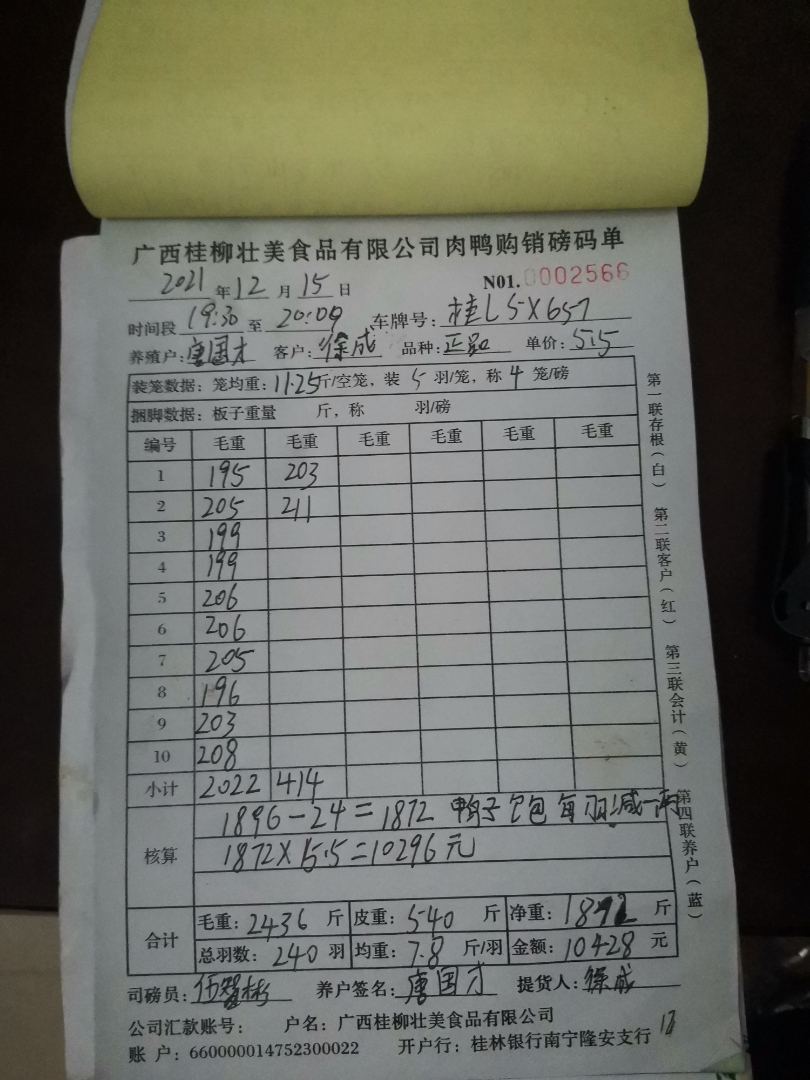 广西桂柳壮美食品有限公司肉鸭购销磅码单
2021 年 12 月 15 日 N01. 0002566
时间段 19:30 至 20:09 车牌号: 桂L5X657
养殖户: 唐国才 客户: 徐成 品种: 正品 单价: 5.5
装笼数据: 笼均重: 11.25 斤/空笼, 装 5 羽/笼, 称 4 笼/磅
捆脚数据: 板子重量 斤, 称 羽/磅
编号 毛重 毛重 毛重 毛重 毛重 毛重
1 195 203
2 205 211
3 199
4 199
5 206
6 206
7 205
8 196
9 203
10 208
小计 2022 414
核算
1896-24=1872 鸭子 包 每羽减一两
1872×5.5=10296元
合计
毛重: 2436 斤 皮重: 540 斤 净重: 斤
总羽数: 240 羽 均重: 7.8 斤/羽 金额: 10428 元
司磅员: 伍智彬 养户签名: 唐国才 提货人: 徐成
公司汇款账号: 户名: 广西桂柳壮美食品有限公司
账 户: 660000014752300022 开户行: 桂林银行南宁隆安支行
第一联存根(白) 第二联客户(红) 第三联会计(黄) 第四联养户(蓝)